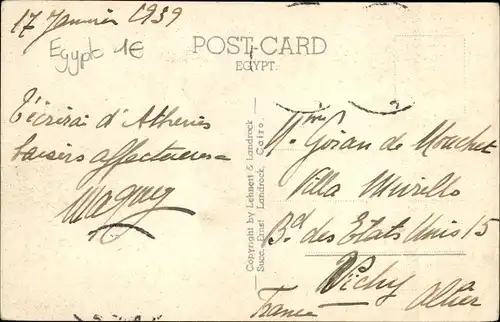 17 Janvier 1939
Egypte 1€
POST-CARD
EGYPT.
T'écrirai d'Athènes
baisers affectueuse=
Maguy
Copyright by Lehnert & Landrock
Succ. Ernst Landrock, Cairo.
Goran de Mouchet
Villa Murillo
B.d des Etats Unis 15
Vichy
Allier
France